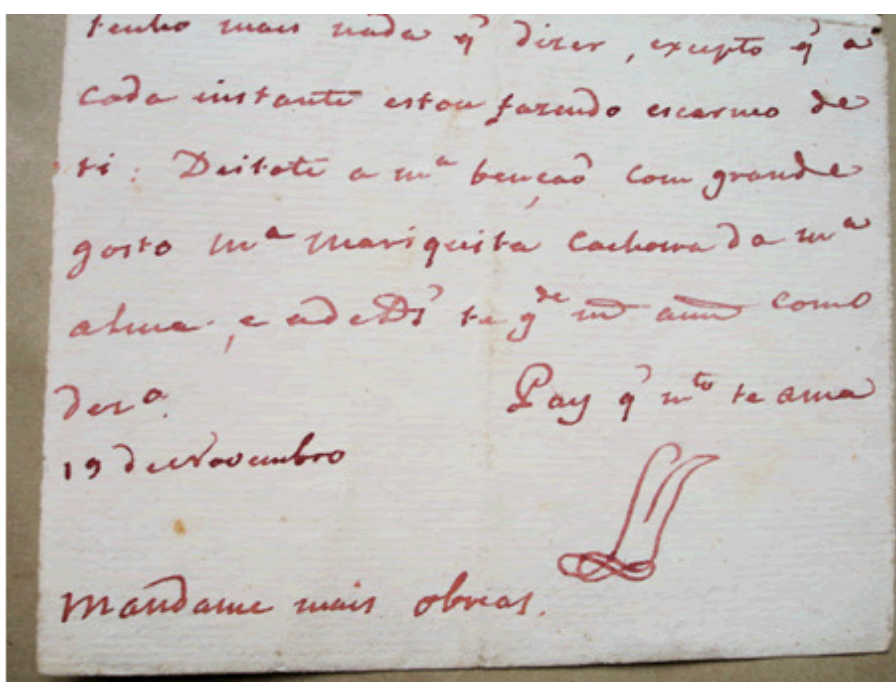 tenho mais nada q̃ diser, excepto q̃ a
cada instante estou fazendo escarneo de
ti. Deitote a mª bençaõ com grande
gosto mª Mariquita cachorra da mª
alma, e a Ds̃ te gde ms̃ ann̄ como
desrª.
Pay q̃ mto te ama
19 de Novembro
Mandame mais obreas.